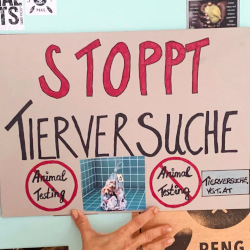 STOPPT
TIERVERSUCHE
Animal
Testing
Animal
Testing
TIERVERSUCHE.
VGT.AT
BENG